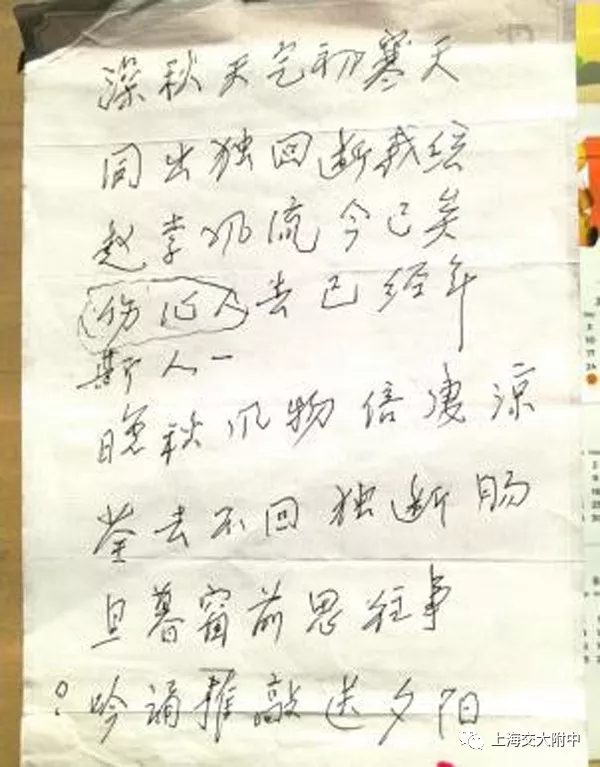 深秋天气初寒天
同出独回断我弦
赵李风流今已矣
伤心人去已经年
斯人一
晚秋风物倍凄凉
荃去不回独断肠
旦暮窗前思往事
吟诵推敲送夕阳
上海交大附中